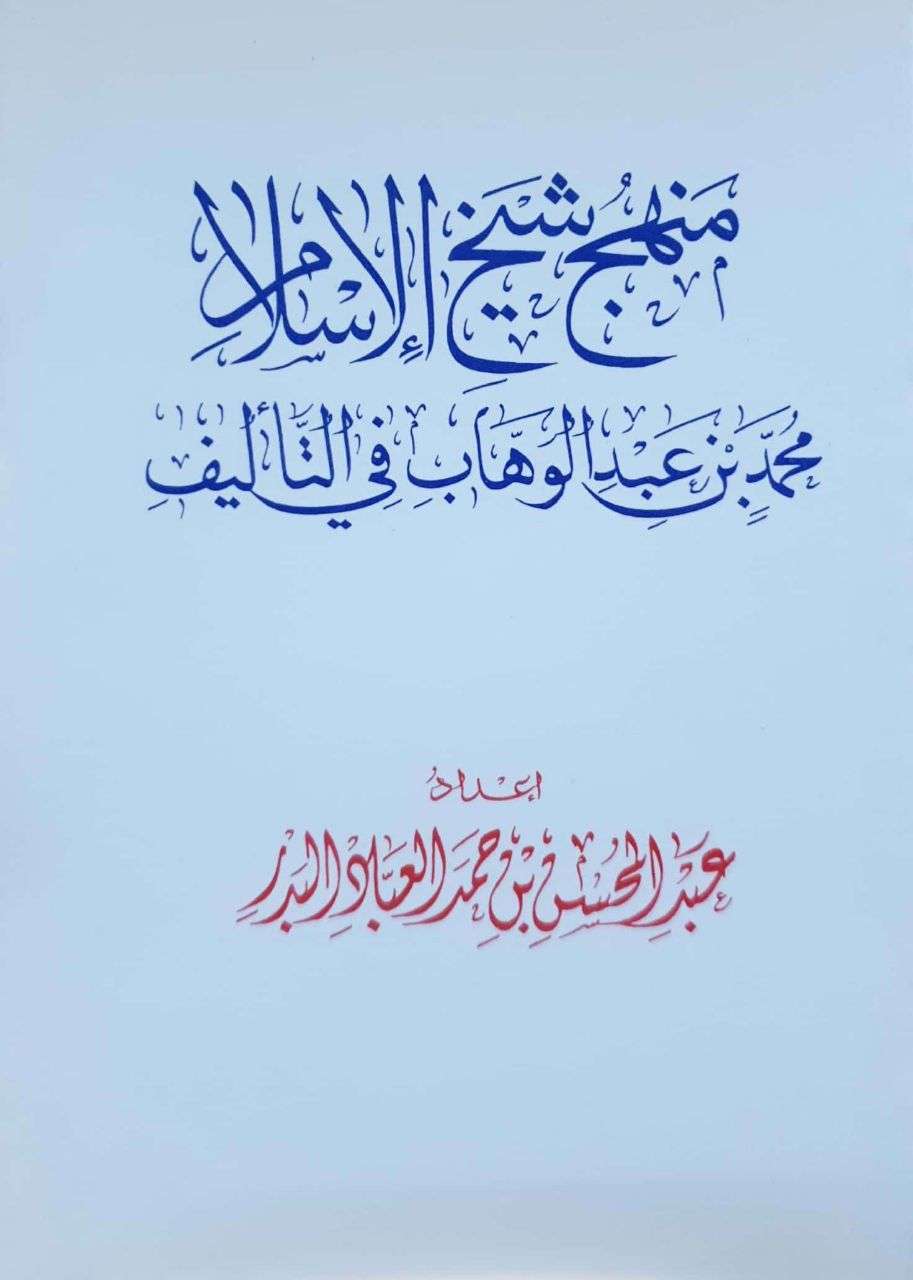 منهج شيخ الإسلام
محمد بن عبد الوهاب في التأليف
إعداد
عبد المحسن بن حمد العباد البدر